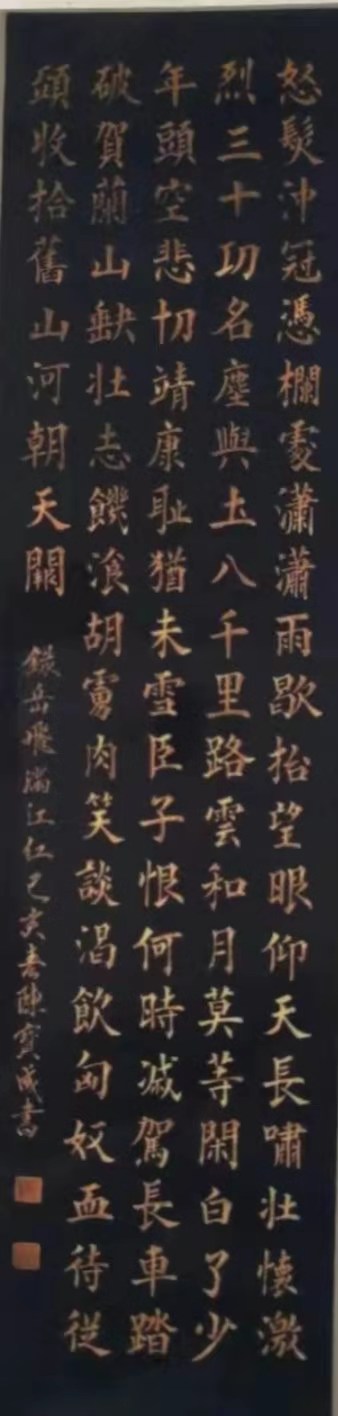 怒髮沖冠憑欄處瀟瀟雨歇抬望眼仰天長嘯壯懷激
烈三十功名塵與土八千里路雲和月莫等閑白了少
年頭空悲切靖康恥猶未雪臣子恨何時滅駕長車踏
破賀蘭山缺壯志饑飡胡虜肉笑談渴飲匈奴血待從
頭收拾舊山河朝天闕
錄岳飛滿江紅己亥春陳寶成書